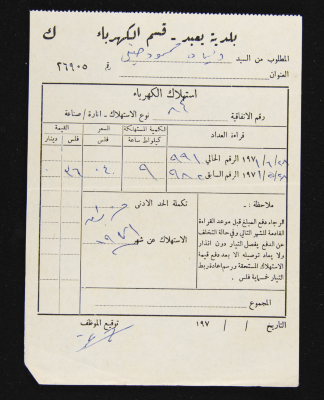 بلدية يعبد - قسم الكهرباء ك
المطلوب من السيد محمود رقم ٢٦٩٠٥
العنوان
استهلاك الكهرباء
رقم الاتفاقية ٨٤ نوع الاستهلاك - انارة / صناعة
قراءة العداد الكمية المستهلكة كيلواط ساعة السعر فلس القيمة فلس دينار
١٩٧ الرقم الحالي ٩٩١ ٩ ٠٤٠ ٣٦٠
١٩٧ الرقم السابق ٩٨٢
ملاحظة :-
الرجاء دفع المبلغ قبل موعد القراءة
القادمة للشهر التالي وفي حالة التخلف
عن الدفع يفصل التيار دون انذار
ولا يعاد توصيله الا بعد دفع قيمة
الاستهلاك المستحقة ورسم اعادة ربط
التيار خمسماية فلس .
تكملة الحد الادنى
الاستهلاك عن شهر
المجموع
التاريخ / / ١٩٧ توقيع الموظف